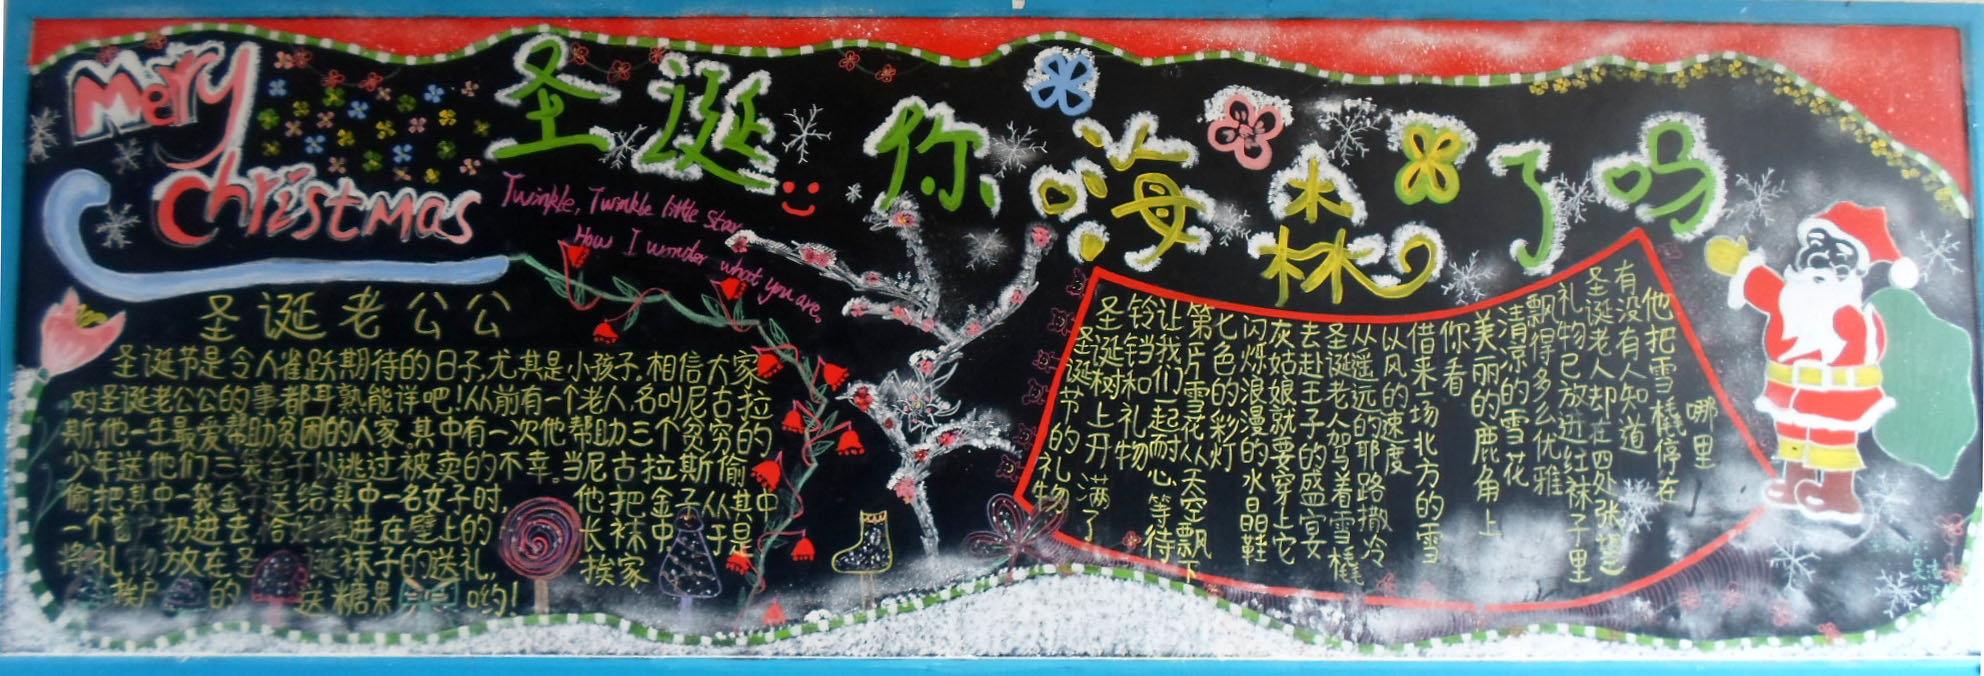 Merry
Christmas
圣诞你嗨森了吗
Twinkle, Twinkle little star
How I wonder what you are.
圣诞老公公
圣诞节是令人雀跃期待的日子,尤其是小孩子.相信大家
对圣诞老公公的事都耳熟能详吧!从前有一个老人,名叫尼古拉
斯,他一生最爱帮助贫困的人家.其中有一次他帮助三个贫穷的
少年送他们三袋金子以逃过被卖的不幸。当尼古拉斯偷
偷把其中一袋金子送给其中一名女子时, 他把金子从其中
一个窗户扔进去,恰好掉进在壁上的 长袜中.于是
将礼物放在圣诞袜子的送礼, 挨家
挨户的 送糖果 哟!
圣诞节的礼物
圣诞树上开满了
铃铛和礼物
让我们一起耐心等待
第片雪花从天空飘下
七色的彩灯
闪烁浪漫的水晶鞋
灰姑娘就要穿上它
去赴王子的盛宴
圣诞老人驾着雪橇
从遥远的耶路撒冷
以风的速度
借来一场北方的雪
你看
美丽的鹿角上
清凉的雪花
飘得多么优雅
礼物已放进红袜子里
圣诞老人却在四处张望
有没有人知道
他把雪橇停在
哪里